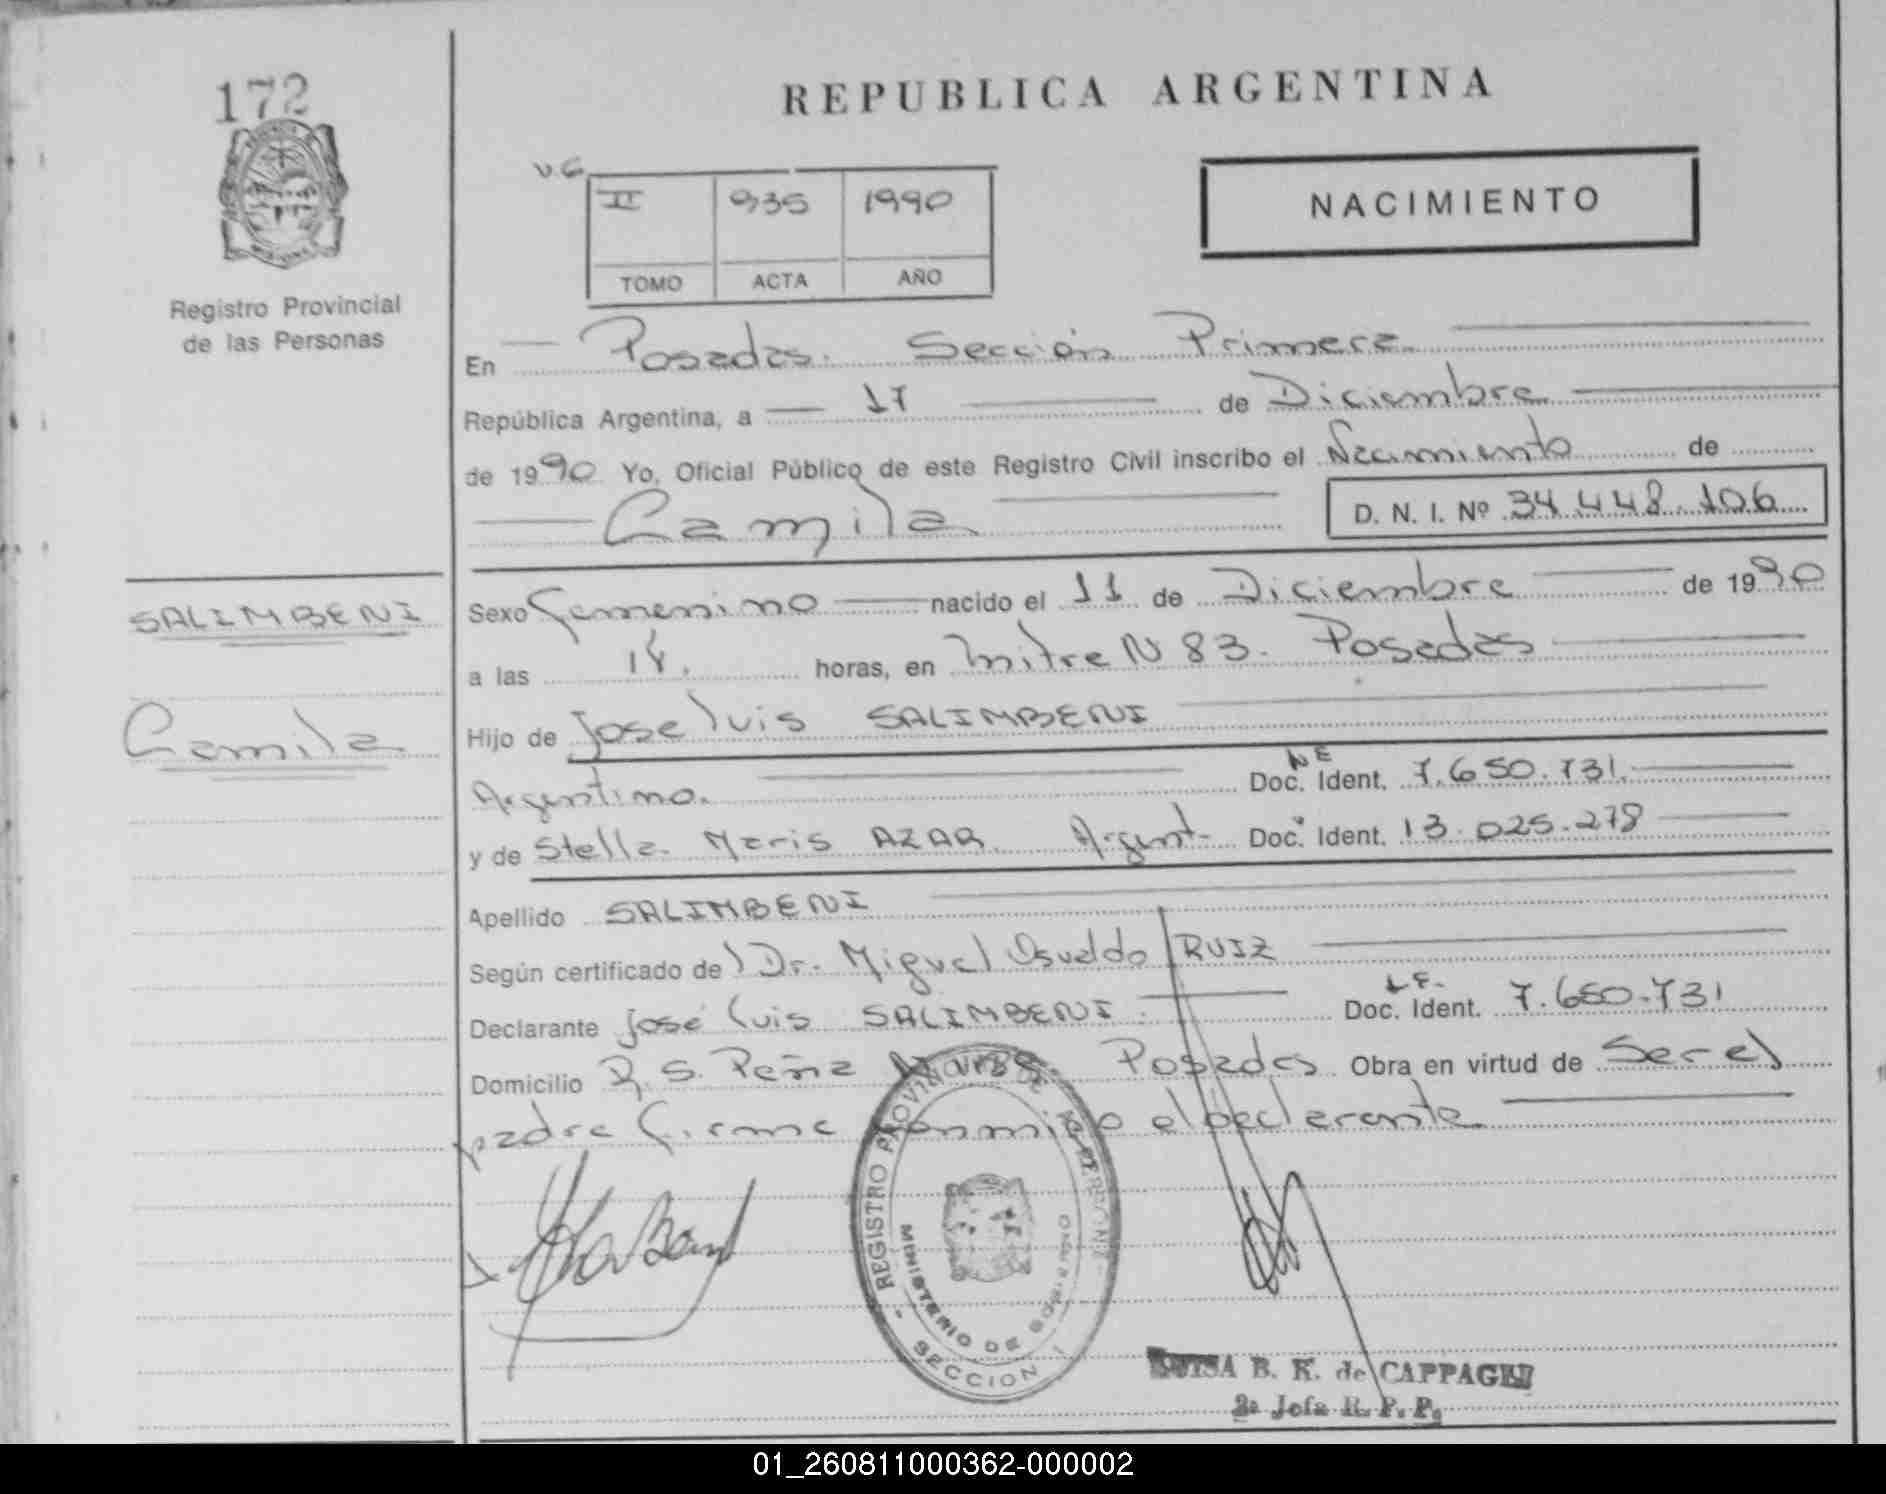 172
REPUBLICA ARGENTINA
II 935 1990
TOMO ACTA AÑO
NACIMIENTO
Registro Provincial
de las Personas
En Posadas. Sección Primera
República Argentina, a 17 de Diciembre
de 1990 Yo, Oficial Público de este Registro Civil inscribo el Nacimiento de
Camila
D. N. I. Nº 34.448.106
SALIMBENI
Camila
Sexo femenino nacido el 11 de Diciembre de 1990
a las horas, en Mitre N 83. Posadas
Hijo de Jose luis SALIMBENI
Argentino. Doc. Ident. 7.650.731.
y de Stella Maris AZAR Argent- Doc. Ident. 13.025.278
Apellido SALIMBENI
Según certificado del Dr. Miguel Osvaldo RUIZ
Declarante José luis SALIMBENI L E. Doc. Ident. 7.650.731
Domicilio R. S. Peña Posadas Obra en virtud de Ser el
padre firma conmigo el declarante
REGISTRO PROVINCIAL DE LAS PERSONAS
MINISTERIO DE GOBIERNO
SECCION 1
LUISA B. K. de CAPPAGLI
2ª Jefa R. P. P.
01_260811000362-000002